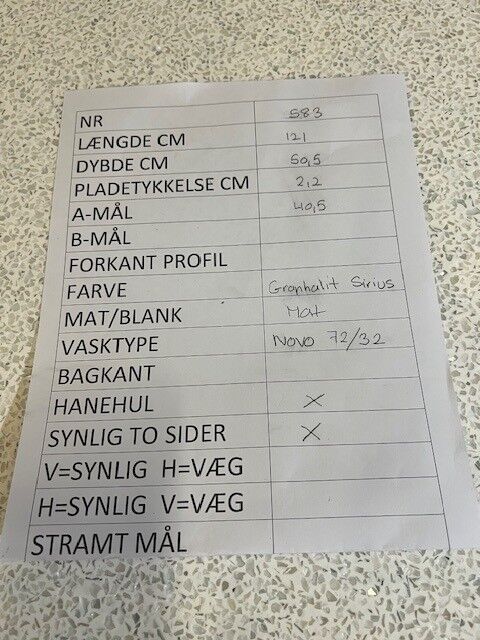 NR 583
LÆNGDE CM 121
DYBDE CM 50,5
PLADETYKKELSE CM 2,2
A-MÅL 40,5
B-MÅL
FORKANT PROFIL
FARVE Graphalit Sirius
MAT/BLANK Mat
VASKTYPE Novo 72/32
BAGKANT
HANEHUL X
SYNLIG TO SIDER X
V=SYNLIG H=VÆG
H=SYNLIG V=VÆG
STRAMT MÅL